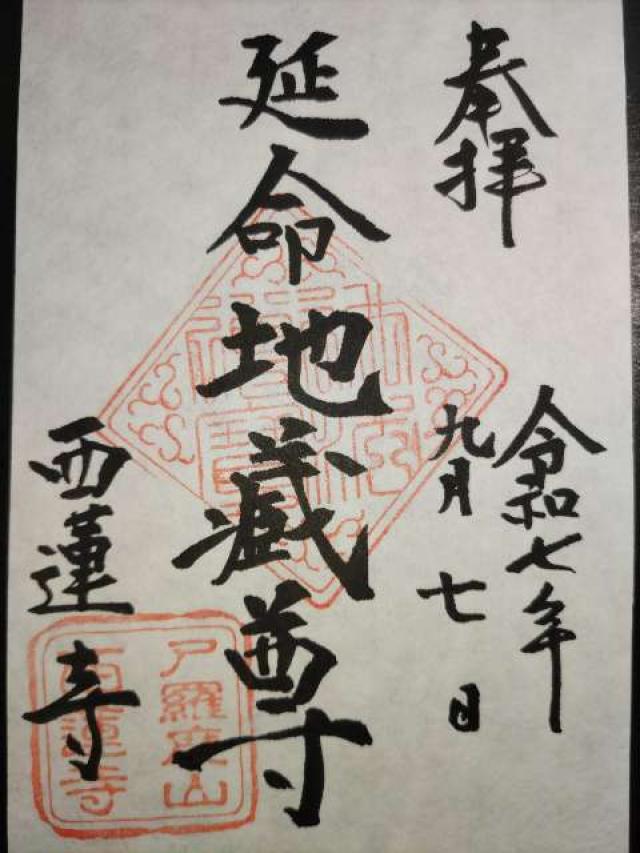 奉拝
令和七年
九月七日
延命地蔵尊
西蓮寺
尸羅度山
西蓮寺